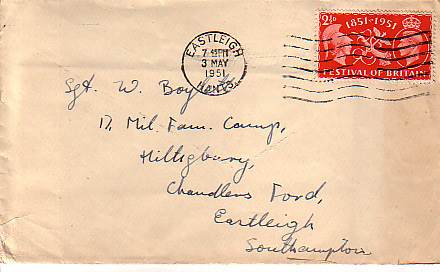 EASTLEIGH
7 15PM
3 MAY
1951
HANTS.
2½D
1851-1951
FESTIVAL OF BRITAIN
Sgt. W. Boyle
17, Mil. Fam. Camp,
Hiltigbury,
Chandlers Ford,
Eastleigh
Southampton